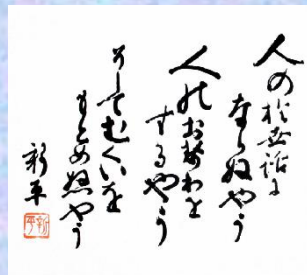 人の於世話に
ならぬやう
人のお世わを
するやう
そしてむくいを
もとめぬやう
新平